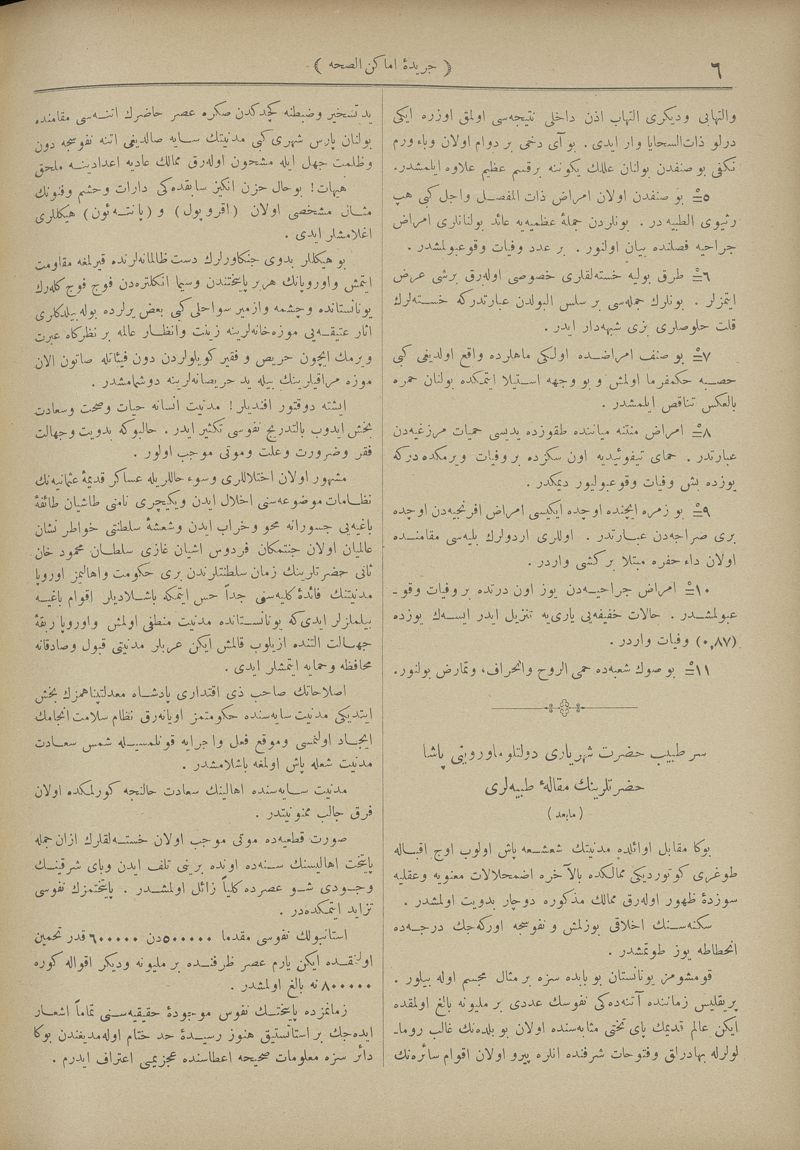 ٦
﴿ جریدهٔ اماكن الصحه ﴾
والتهابی ودیكری التهاب اذن داخلی نتیجه‌سی اولمق اوزره ایكی
درلو ذات‌السحایا وار ایدی . بو آی دخی بر دوام اولان وباء ورم
نكفی بو صنفدن بولنان عللك یكوننه برقسم عظیم علاوه ایلمشدر.
٥نجی بو صنفدن اولان امراض ذات المفصل واجل كبی هپ
رثیوی الطبیه‌در . بونلردن جملهٔ عظمیه‌یه عائد بولنانلری امراض
جراحیه فصلنده بیان اولنور . بر عدد وفیات وقوعبولمشدر.
٦نجی طرق بولیه خسته‌لقلری خصوصی اوله‌رق برشی عرض
ایتمزلر . بونلرك جمله‌سی بر سلس البولدن عبارتدركه خسته‌لرك
قلت حلوصلری بزی شبهه‌دار ایدر.
٧نجی بو صنف امراضده اولكی ماهلرده واقع اولدیغی كبی
حصبه حكمفرما اولمش و بو وجهه استیلا ایتمكده بولنان حمره
بالعكس تناقص ایلمشدر.
٨نجی امراض منتنه میاننده طقوزده یدیسی حمیات مرزغیه‌دن
عبارتدر. حمای تیفوئیدیه اون سكزده بر وفیات ویرمكده‌دركه
یوزده بش وفیات وقوعبولیور دیمكدر.
٩نجی بو زمره ایچنده اوچده ایكیسی امراض افرنجیه‌دن اوچده
بری صراجه‌دن عبارتدر . اوللری اردولرك بلیه‌سی مقامنده
اولان داء حفره مبتلا بركشی واردر.
١٠نجی امراض جراحیه‌دن یوز اون درتده بر وفیات وقو-
عبولمشدر. حالات خفیفه‌یی یاری‌یه تنزیل ایدر ایسه‌ك یوزده
(٠,٨٧) وفیات واردر.
١١نجی بو صوك شعبه‌ده حمی الروح وانحراف، وتمارض بولنور.
سر طبیب حضرت شهریاری دولتلو ماوروینی پاشا
حضرتلرینك مقالهٔ طبیه‌لری
(مابعد)
بوكا مقابل اوائلده مدنیتك شعشعه پاش اولوب اوج اقباله
طوغری كوتوردیكی ممالكده بالآخره اضمحلالات معنویه وعقلیه
سوزدهٔ ظهور اوله‌رق ممالك مذكوره دوچار بدویت اولمشدر.
سكنه‌سنك اخلاقی بوزلمش و نفوسجه اوركه‌جك درجه‌ده
انحطاطه یوز طوتمشدر.
قومشومز یونانستان بو بابده سزه بر مثال مجسم اوله بیلور.
پریقلیس زماننده آتنه‌ده‌كی نفوسك عددی بر ملیونه بالغ اولمقده
ایكن عالم قدیمك پای تختی مثابه‌سنده اولان بو بلده‌نك غالب روما-
لولرله بهادرلق وفتوحات شرفنده انلره پیرو اولان اقوام سائره‌نك
ید تسخیر وضبطنه كچدكدن صكره عصر حاضرك اتنه‌سی مقامنده
بولنان پارس شهری كبی مدنیتك سایه صالدیغی اتنه نفوسجه دون
وظلمت جهل ایله مشحون اوله‌رق ممالك عادیه اعدادینه ملحق
هیهات! بو حال حزن انكیز سابقده‌كی دارات وحشم وفنونك
مثال مشخصی اولان (اقروپول) و (پانته‌ئون) هیكللری
اغلامشلر ایدی .
بو هیكللر بدوی جنكاورلرك دست ظالمانه‌لرنده قیرلمغه مقاومت
ایتمش واوروپانك هر بر پایتختندن وسیما انكلتره‌دن فوج فوج كله‌رك
یونانستانده وچشمه وازمیر سواحلی كبی بعض یرلرده بوله بیلدكلری
آثار عتیقه‌یی موزه‌خانه‌لرینه زینت وانظار عالمه بر نظركاه عبرت
ویرمك ایچون حریص و فقیر كویلولردن دون فیئاتله صاتون الان
موزه مراقلیلرینك بیله ید حریصانه‌لرینه دوشمامشدر.
ایشته دوقتور افندیلر! مدنیت انسانه حیات وصحت وسعادت
بخش ایدوب بالتدریج نفوسی تكثیر ایدر. حالبوكه بدویت وجهالت
فقر وضرورت وعلت وموتی موجب اولور.
مشهور اولان اختلاللری وسوء حاللریله عساكر قدیمهٔ عثمانیه‌نك
نظامات موضوعه‌سنی اخلال ایدن ویكیچری نامنی طاشیان طائفهٔ
باغیه‌یی جسورانه محو وخراب ایدن وشعشهٔ سلطنتی خواطر نشان
عالمیان اولان جنتمكان فردوس اشیان غازی سلطان محمود خان
ثانی حضرتلرینك زمان سلطنتلرندن بری حكومت واهالیمز اوروپا
مدنیتنك فائدهٔ كلیه‌سنی جداً حس ایتمكه باشلادیلر اقوام باغیه
بیلملزلر ایدی‌كه یونانستانده مدنیت منطفی اولمش واوروپا ربقهٔ
جهالت التنده ازیلوب قالمش ایكن عربلر مدنیتی قبول وصادقانه
محافظه وحمایه ایتمشلر ایدی .
اصلاحاتك صاحب ذی اقتداری پادشاه معدلتپناهمزك بخش
ایتدیكی مدنیت سایه‌سنده حكومتمز اویانه‌رق نظام سلامت انجامك
ایجاد اولنمسی وموقع فعل واجرایه قونلمسیله شمس سعادت
مدنیت شعله پاش اولمغه باشلامشدر.
مدنیت سایه‌سنده اهالینك سعادت حالنجه كورلمكده اولان
فرق جالب ممنونیتدر.
صورت قطعیه‌ده موتی موجب اولان خسته‌لقلرك ازان جمله
پایتخت اهالیسنك سنه‌ده اونده برینی تلف ایدن وبای شرقینك
وجودی شو عصرده كلیاً زائل اولمشدر. پایتختمزك نفوسی
تزاید ایتمكده‌در.
استانبولك نفوسی مقدما ٥٠٠٠٠٠دن ٦٠٠٠٠٠ قدر تخمین
اولنقده ایكن یارم عصر ظرفنده بر ملیونه ودیكر اقواله كوره
٨٠٠٠٠٠ نه بالغ اولمشدر.
زمانمزده پایتختك نفوس موجودهٔ حقیقیه‌سنی تماماً اشعار
ایده‌جك بر استاتستیق هنوز رسیدهٔ حد ختام اوله‌مدیغندن بوكا
دائر سزه معلومات صحیحه اعطاسنده عجزیمی اعتراف ایدرم.